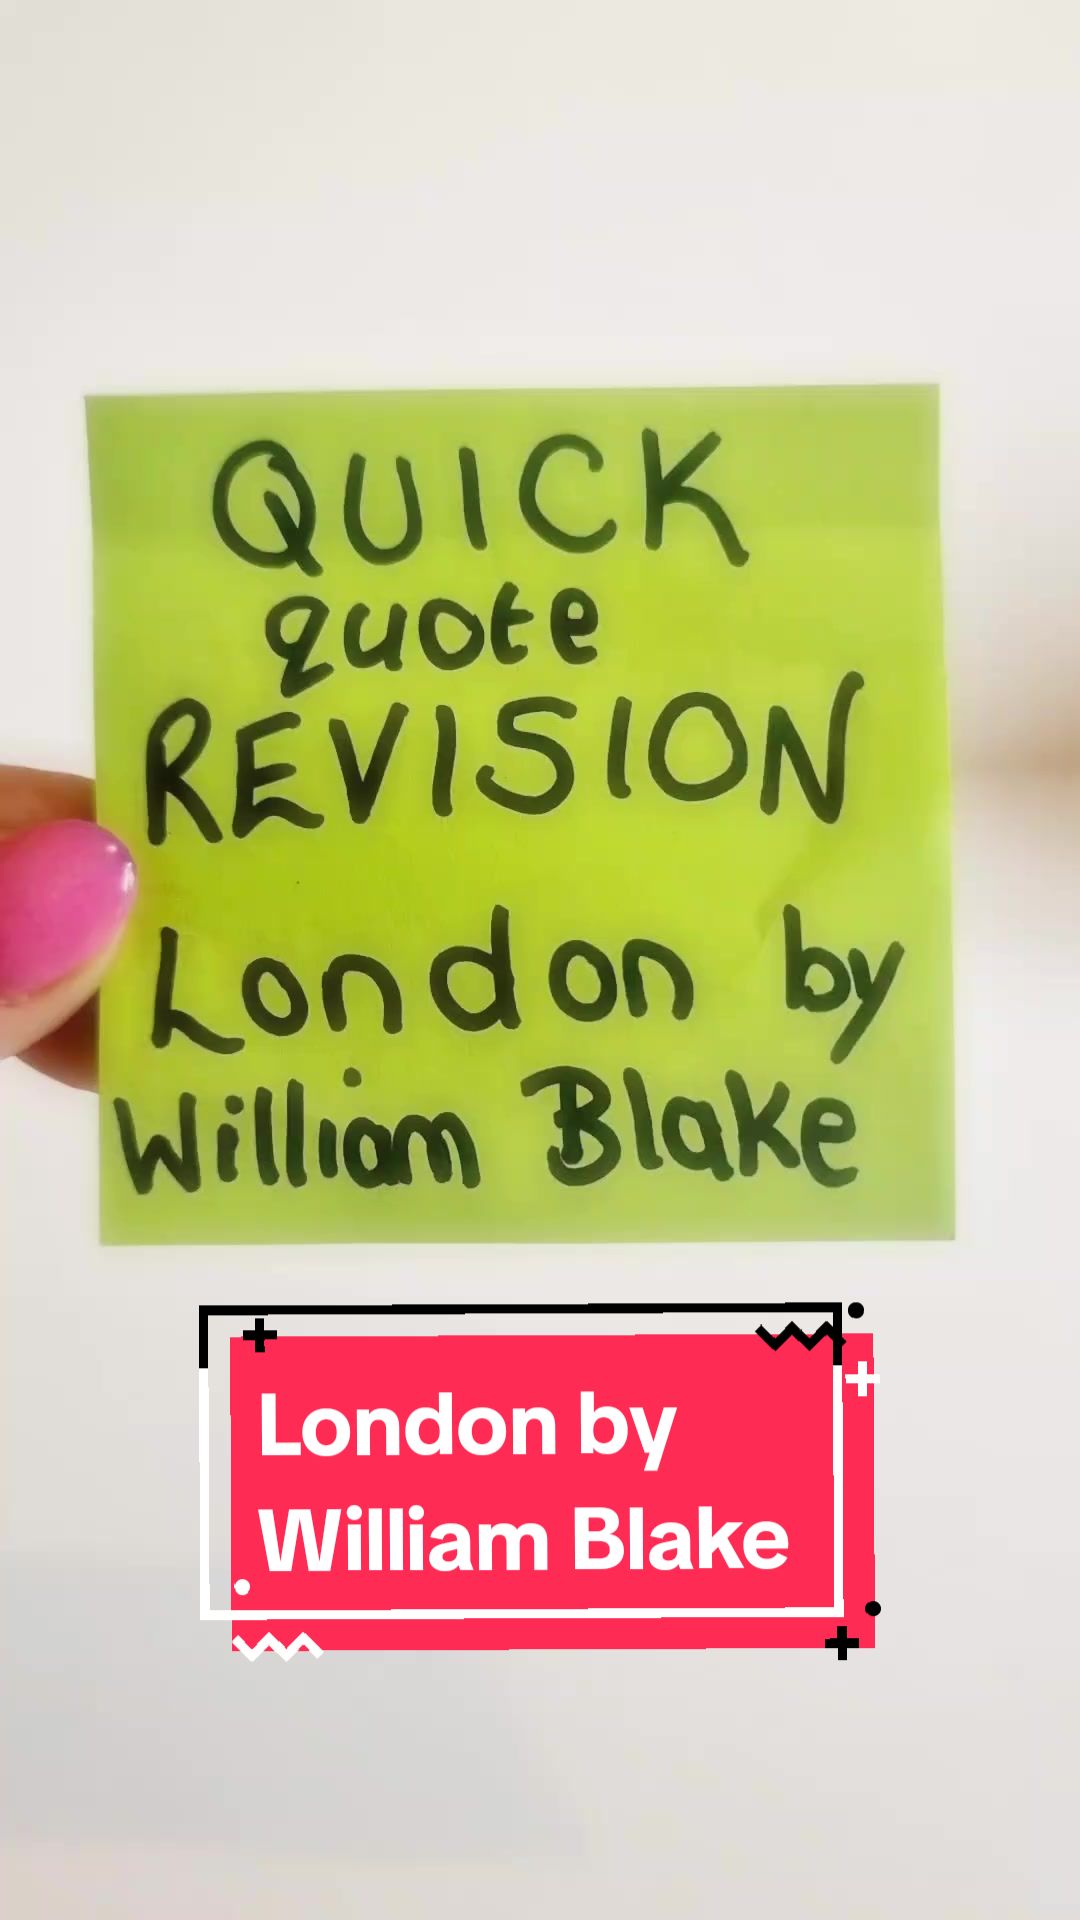 QUICK
quote
REVISION
London by
William Blake
London by
William Blake